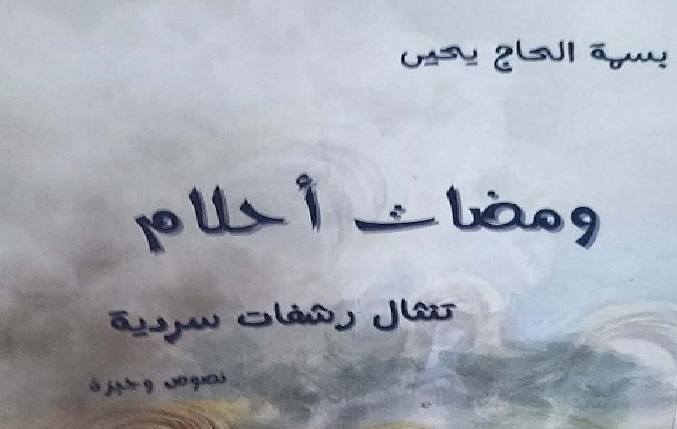 بسمة الحاج يحيى
ومضات أحلام
تنثال رشفات سردية
نصوص وجيزة